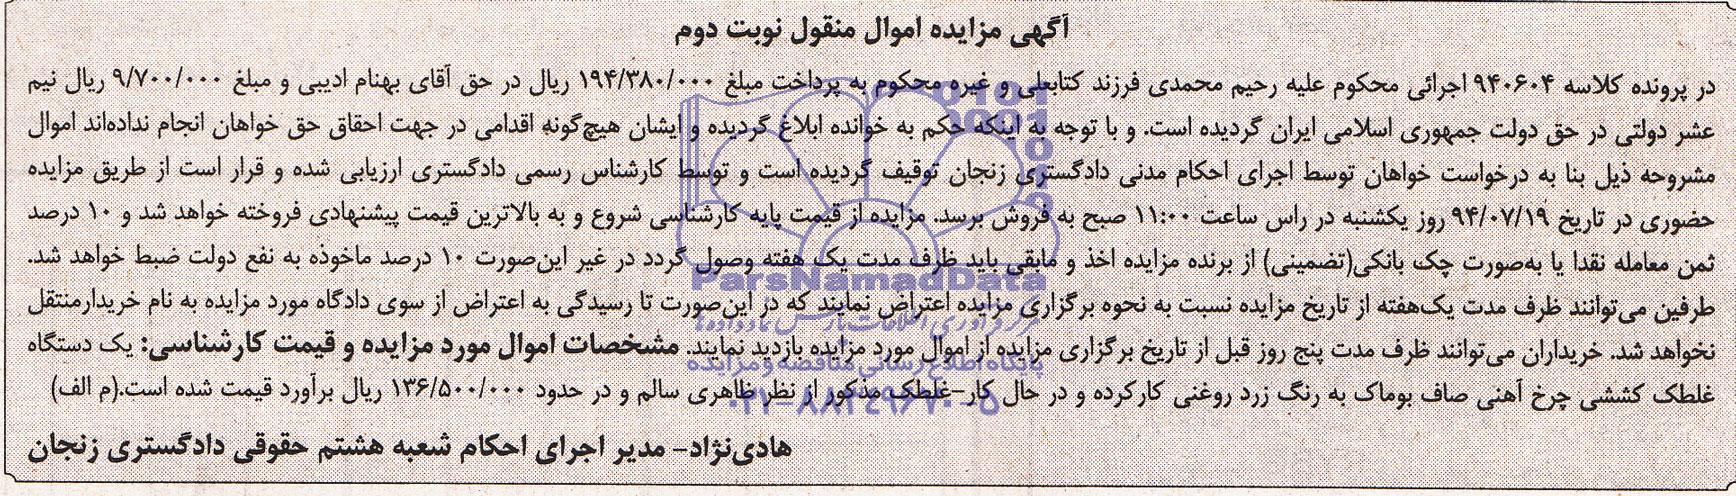 آگهی مزایده اموال منقول نوبت دوم
در پرونده کلاسه ۹۴۰۶۰۴ اجرائی محکوم علیه رحیم محمدی فرزند کتابعلی و غیره محکوم به پرداخت مبلغ ۱۹۴/۳۸۰/۰۰۰ ریال در حق آقای بهنام ادیبی و مبلغ ۹/۷۰۰/۰۰۰ ریال نیم
عشر دولتی در حق دولت جمهوری اسلامی ایران گردیده است. و با توجه به اینکه حکم به خوانده ابلاغ گردیده و ایشان هیچ‌گونه اقدامی در جهت احقاق حق خواهان انجام نداده‌اند اموال
مشروحه ذیل بنا به درخواست خواهان توسط اجرای احکام مدنی دادگستری زنجان توقیف گردیده است و توسط کارشناس رسمی دادگستری ارزیابی شده و قرار است از طریق مزایده
حضوری در تاریخ ۹۴/۰۷/۱۹ روز یکشنبه در راس ساعت ۱۱:۰۰ صبح به فروش برسد. مزایده از قیمت پایه کارشناسی شروع و به بالاترین قیمت پیشنهادی فروخته خواهد شد و ۱۰ درصد
ثمن معامله نقدا یا به‌صورت چک بانکی(تضمینی) از برنده مزایده اخذ و مابقی باید ظرف مدت یک هفته وصول گردد در غیر این‌صورت ۱۰ درصد ماخوذه به نفع دولت ضبط خواهد شد.
طرفین می‌توانند ظرف مدت یک‌هفته از تاریخ مزایده نسبت به نحوه برگزاری مزایده اعتراض نمایند که در این‌صورت تا رسیدگی به اعتراض از سوی دادگاه مورد مزایده به نام خریدارمنتقل
نخواهد شد. خریداران می‌توانند ظرف مدت پنج روز قبل از تاریخ برگزاری مزایده از اموال مورد مزایده بازدید نمایند. مشخصات اموال مورد مزایده و قیمت کارشناسی: یک دستگاه
غلطک کششی چرخ آهنی صاف بوماک به رنگ زرد روغنی کارکرده و در حال کار-غلطک مذکور از نظر ظاهری سالم و در حدود ۱۳۶/۵۰۰/۰۰۰ ریال برآورد قیمت شده است.(م الف)
هادی‌نژاد- مدیر اجرای احکام شعبه هشتم حقوقی دادگستری زنجان
ParsNamadData
پایگاه اطلاع رسانی مناقصه و مزایده